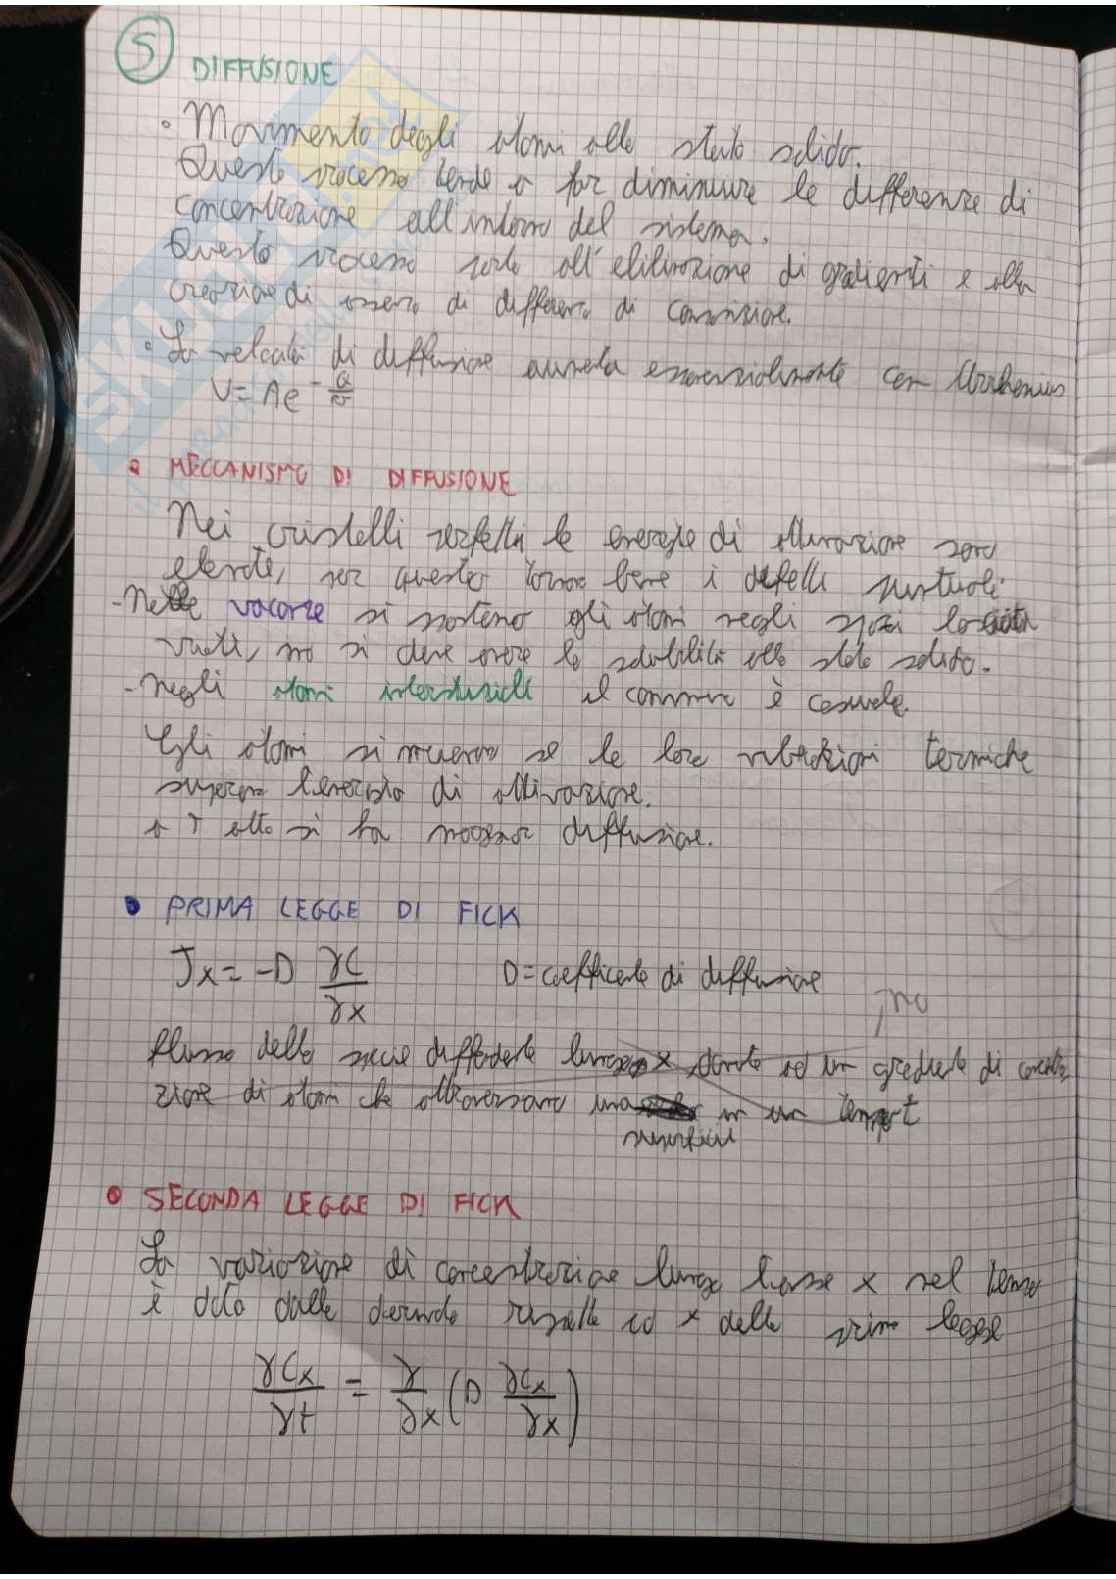 5 DIFFUSIONE
• Movimento degli atomi allo stato solido.
Questo processo tende a far diminuire le differenze di
concentrazione all'interno del sistema.
Questo processo porta all' di gradienti e alla
di di differenze di
• La velocità di diffusione aumenta esponenzialmente con Arrhenius
V = Ae
• MECCANISMO DI DIFFUSIONE
Nei cristalli perfetti le energie di attivazione sono
elevate, per questo torna bene i difetti puntuali
- Nelle vacanze si spostano gli atomi negli spazi
vuoti, ma si deve avere la solubilità allo stato solido.
- negli atomi interstiziali il cammino è casuale.
Gli atomi si muovono se le loro vibrazioni termiche
supera l'energia di attivazione.
a T alta si ha maggior diffusione.
• PRIMA LEGGE DI FICK
Jx = -D γC/γx D = coefficente di diffusione
no
flusso della specie diffondente lungo x dovuto ad un gradiente di concentra
zione di atomi che attraversano una in un tempo t
superficie
• SECONDA LEGGE DI FICK
La variazione di concentrazione lungo l'asse x nel tempo
è data dalla derivata rispetto ad x della prima legge
γCx/γt = γ/γx (D γCx/γx)